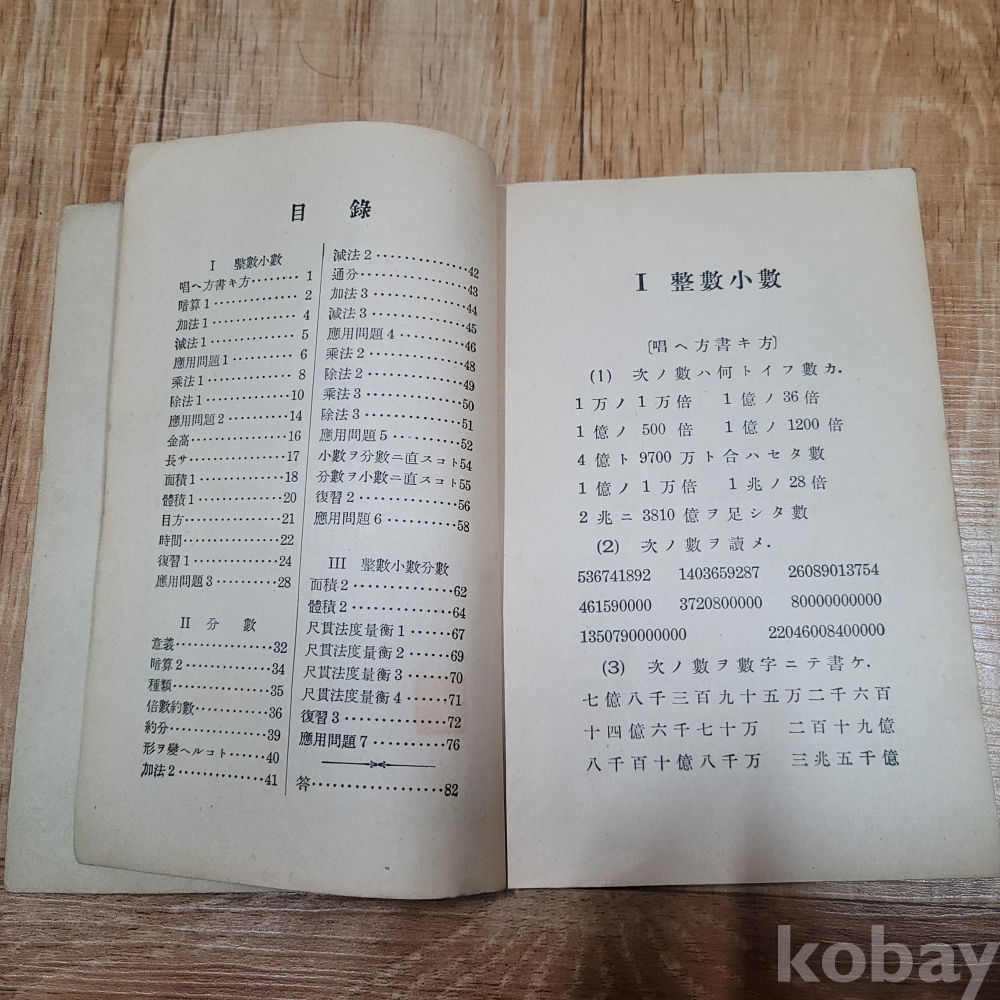 目錄
I 整數小數
唱ヘ方書キ方········ 1
暗算1·············· 2
加法1·············· 4
減法1·············· 5
應用問題1·········· 6
乘法1·············· 8
除法1··············10
應用問題2··········14
金高················16
長サ················17
面積1··············18
體積1··············20
目方················21
時間················22
復習1··············24
應用問題3··········28
II 分數
意義················32
暗算2··············34
種類················35
倍數約數············36
約分················39
形ヲ變ヘルコト······40
加法2··············41
減法2··············42
通分················43
加法3··············44
減法3··············45
應用問題4··········46
乘法2··············48
除法2··············49
乘法3··············50
除法3··············51
應用問題5··········52
小數ヲ分數ニ直スコト54
分數ヲ小數ニ直スコト55
復習2··············56
應用問題6··········58
III 整數小數分數
面積2··············62
體積2··············64
尺貫法度量衡1······67
尺貫法度量衡2······69
尺貫法度量衡3······70
尺貫法度量衡4······71
復習3··············72
應用問題7··········76
答··················82
I 整數小數
〔唱ヘ方書キ方〕
(1) 次ノ數ハ何トイフ數カ.
1万ノ1万倍 1億ノ36倍
1億ノ 500倍 1億ノ 1200倍
4億ト 9700万ト合ハセタ數
1億ノ1万倍 1兆ノ28倍
2兆ニ 3810億ヲ足シタ數
(2) 次ノ數ヲ讀メ.
536741892 1403659287 26089013754
461590000 3720800000 80000000000
1350790000000 22046008400000
(3) 次ノ數ヲ數字ニテ書ケ.
七億八千三百九十五万二千六百
十四億六千七十万 二百十九億
八千百十億八千万 三兆五千億
kobay